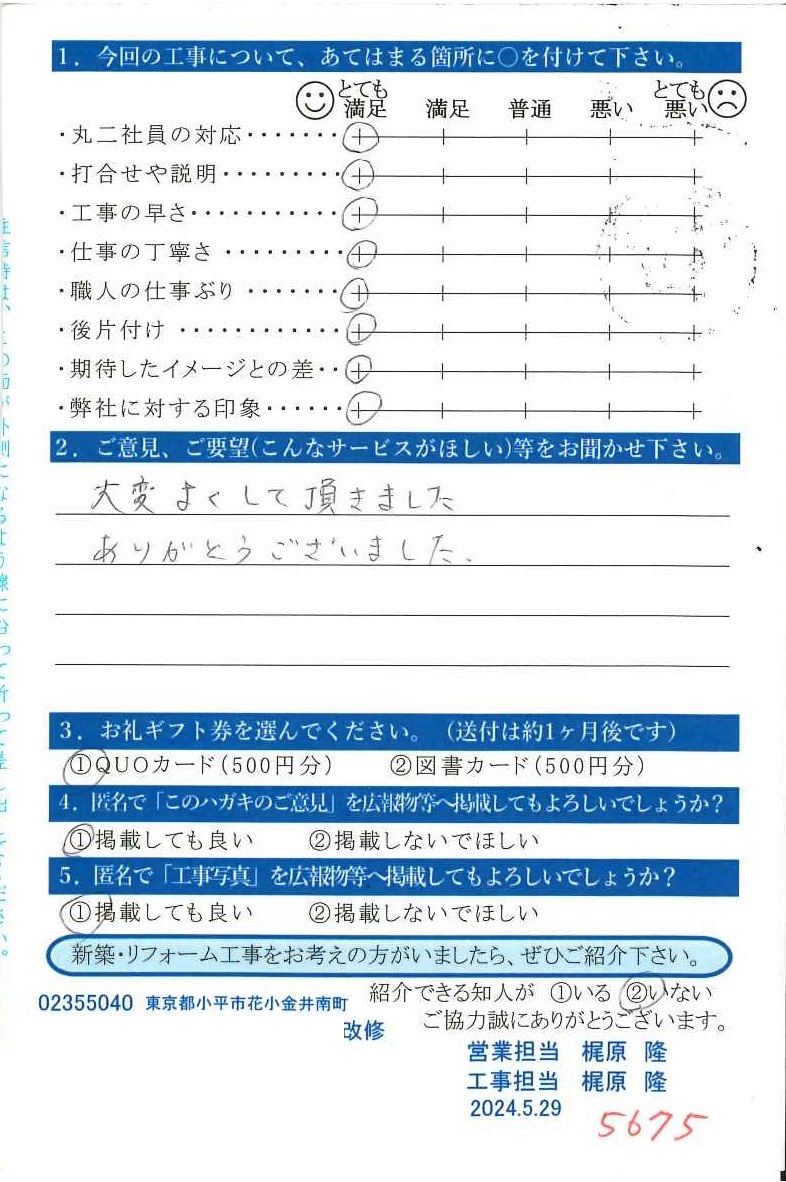 1. 今回の工事について、あてはまる箇所に○を付けて下さい。
とても満足 満足 普通 悪い とても悪い
・丸二社員の対応・・・・・・・
・打合せや説明・・・・・・・・・
・工事の早さ・・・・・・・・・・・
・仕事の丁寧さ ・・・・・・・・・
・職人の仕事ぶり ・・・・・・・
・後片付け ・・・・・・・・・・・・
・期待したイメージとの差・・
・弊社に対する印象・・・・・・
2. ご意見、ご要望(こんなサービスがほしい)等をお聞かせ下さい。
大変よくして頂きました
ありがとうございました、
3. お礼ギフト券を選んでください。（送付は約1ヶ月後です）
①QUOカード(500円分) ②図書カード(500円分)
4. 匿名で「このハガキのご意見」を広報物等へ掲載してもよろしいでしょうか?
①掲載しても良い ②掲載しないでほしい
5. 匿名で「工事写真」を広報物等へ掲載してもよろしいでしょうか?
①掲載しても良い ②掲載しないでほしい
新築・リフォーム工事をお考えの方がいましたら、ぜひご紹介下さい。
紹介できる知人が ①いる ②いない
02355040 東京都小平市花小金井南町
改修
ご協力誠にありがとうございます。
営業担当 梶原 隆
工事担当 梶原 隆
2024.5.29
5675